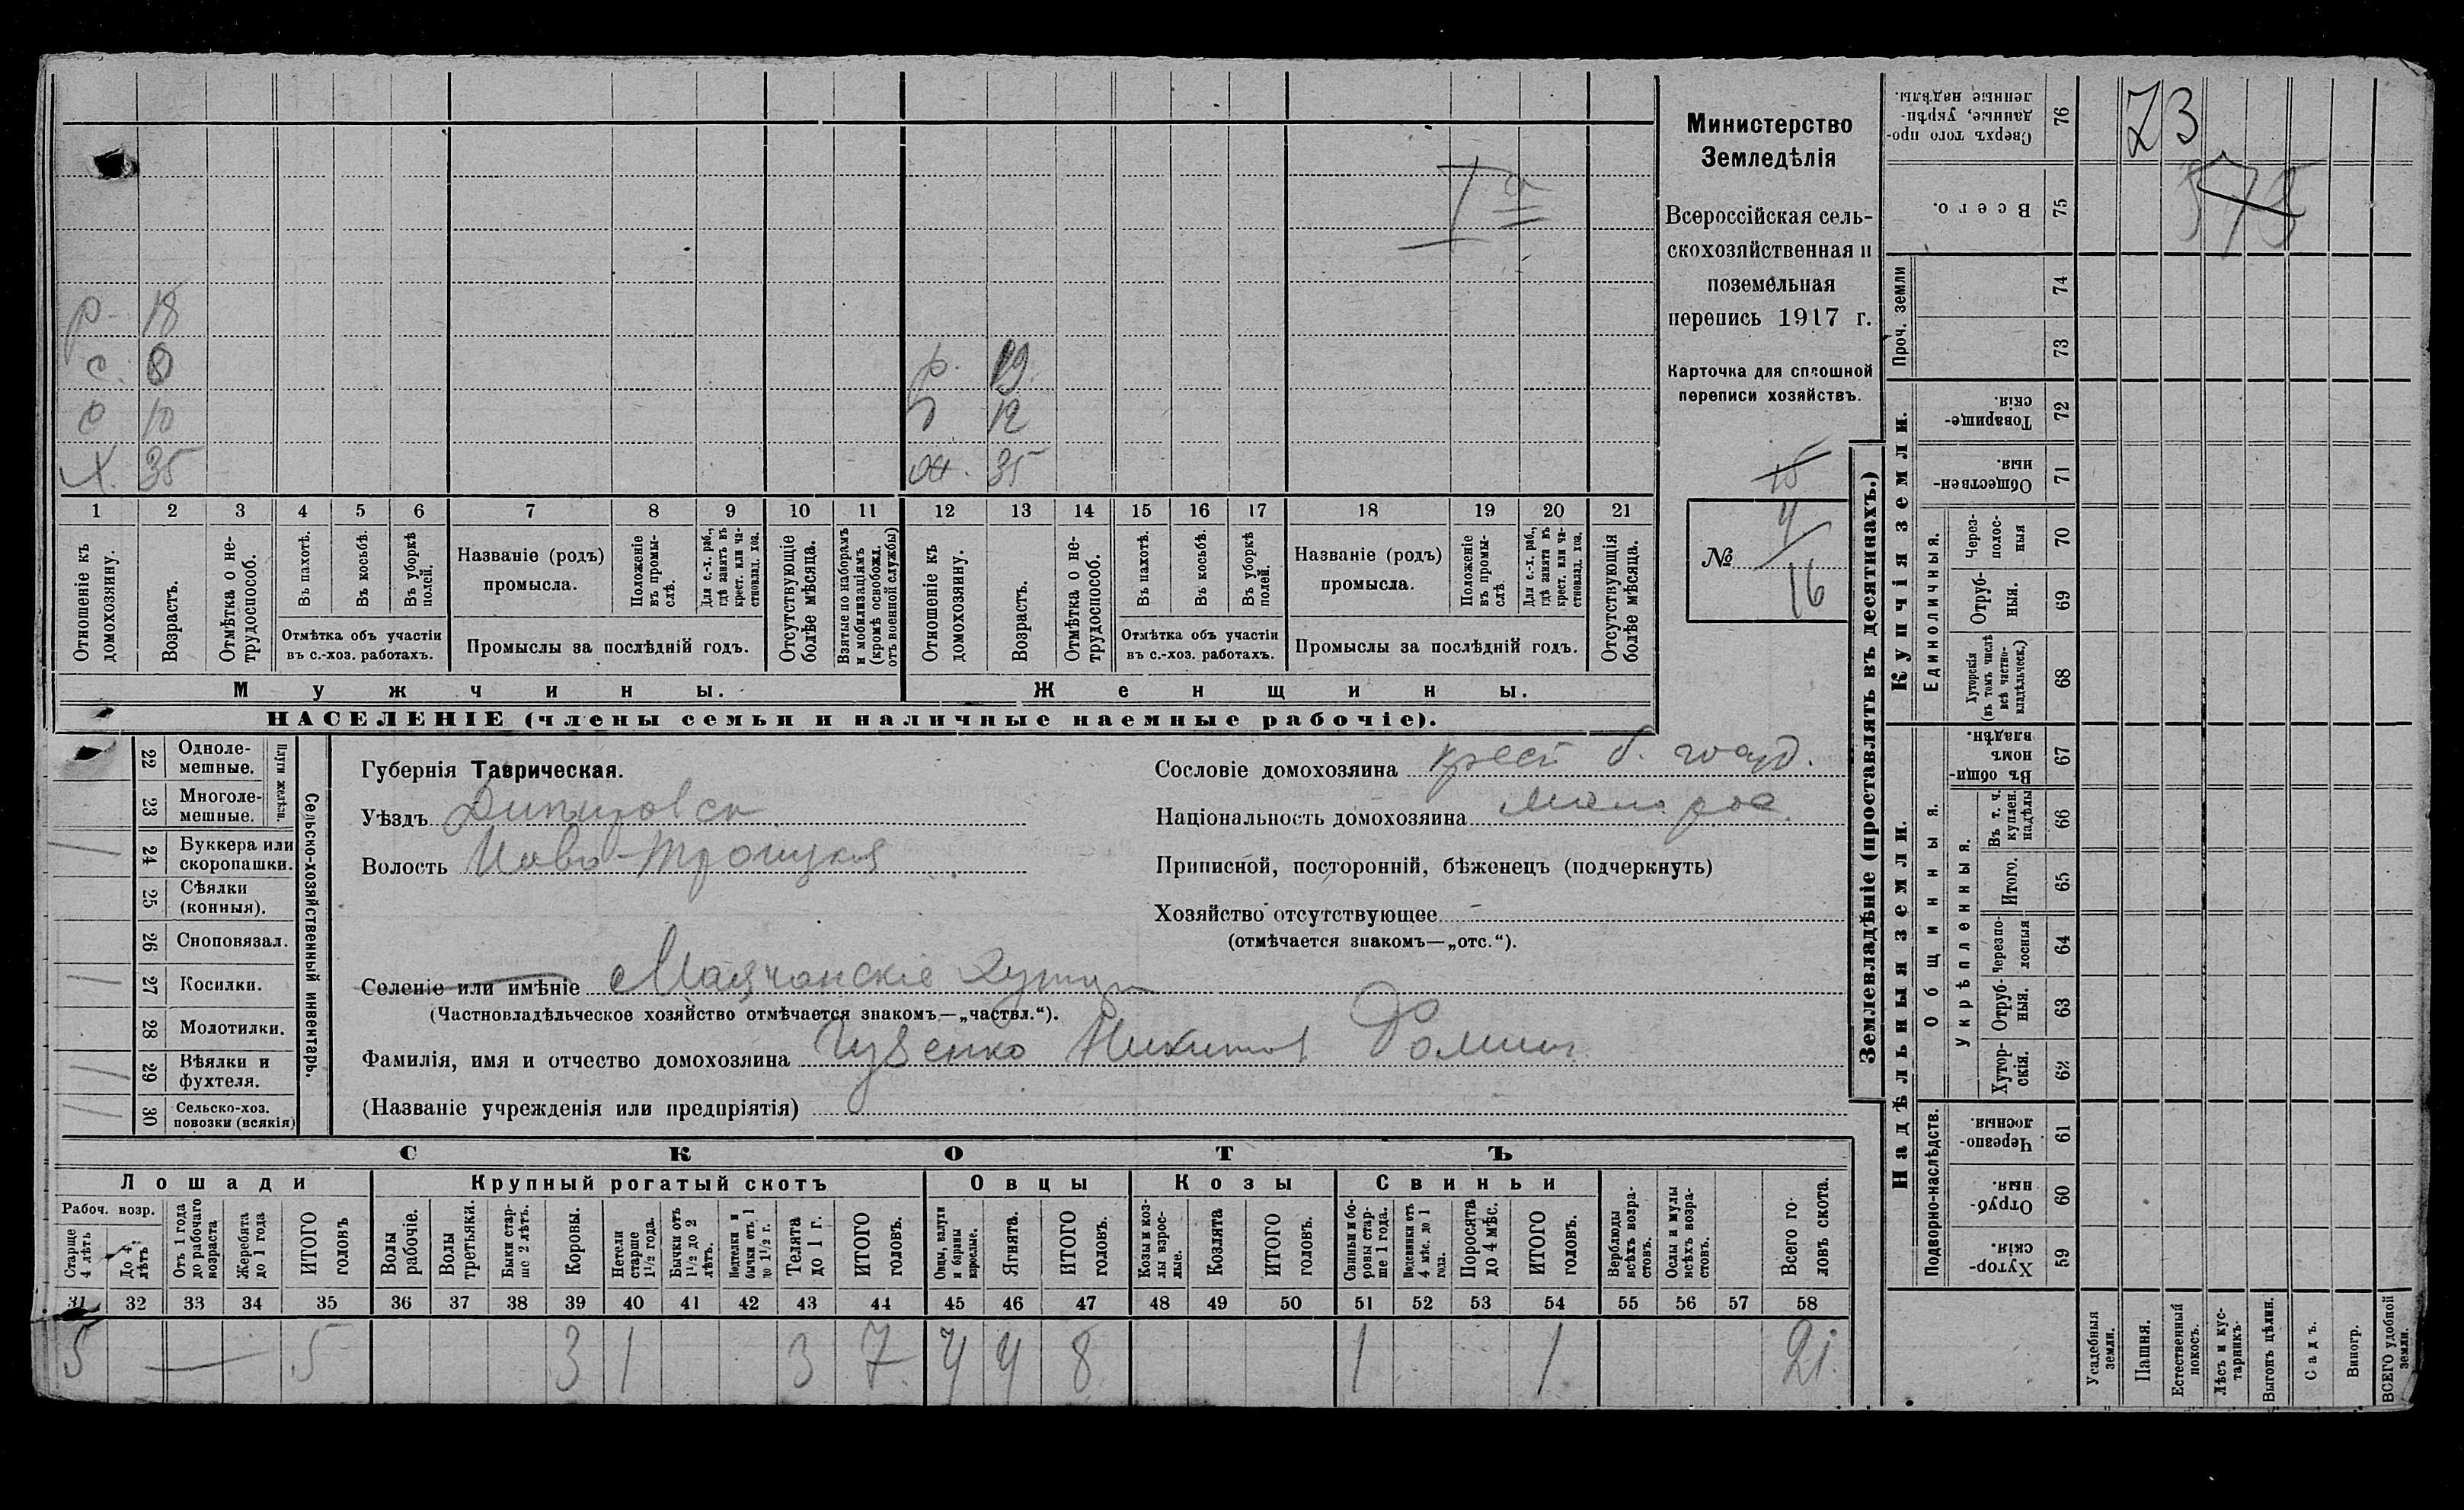 р. 18
с. 8 р. 19.
с 10 12
х. 35 ж. 35
1 2 3 4 5 6 7 8 9 10 11 12 13 14 15 16 17 18 19 20 21
Отношеніе къ домохозяину.
Возрастъ.
Отмѣтка о не-
трудоспособ.
Въ пахотѣ.
Въ косьбѣ.
Въ уборкѣ
полей.
Отмѣтка объ участіи
въ с.-хоз. работахъ.
Названіе (родъ)
промысла.
Положеніе
въ промы-
слѣ.
Для с.-х. раб.,
гдѣ занятъ въ
крест. или ча-
стновлад. хоз.
Промыслы за послѣдній годъ.
Отсутствующіе
болѣе мѣсяца.
Взятые по наборамъ
и мобилизаціямъ
(кромѣ освобожд.
отъ военной службы)
Отношеніе къ
домохозяину.
Возрастъ.
Отмѣтка о не-
трудоспособ.
Въ пахотѣ.
Въ косьбѣ.
Въ уборкѣ
полей.
Отмѣтка объ участіи
въ с.-хоз. работахъ.
Названіе (родъ)
промысла.
Положеніе
въ промы-
слѣ
Для с.-х. раб.,
гдѣ занята въ
крест. или ча-
стновлад. хоз.
Промыслы за послѣдній годъ.
Отсутствующія
болѣе мѣсяца.
Мужчины.
Женщины.
НАСЕЛЕНІЕ (члены семьи и наличные наемные рабочіе).
Министерство
Земледѣлія
Всероссійская сель-
скохозяйственная и
поземельная
перепись 1917 г.
Карточка для сплошной
переписи хозяйствъ.
15
№ 4
16
22 Одноле-
мешные.
23 Многоле-
мешные.
Плуги желѣзн.
24 Буккера или
скоропашки.
25 Сѣялки
(конныя).
26 Сноповязал.
27 Косилки.
28 Молотилки.
29 Вѣялки и
фухтеля.
30 Сельско-хоз.
повозки (всякія)
Сельско-хозяйственный инвентарь.
Губернія Таврическая.
Уѣздъ Днѣпровск
Волость Ново-Троицкая
Селеніе или имѣніе Маячанскіе хутора
(Частновладѣльческое хозяйство отмѣчается знакомъ—„частвл.“).
Фамилія, имя и отчество домохозяина Гузенко Никита Фомич
(Названіе учрежденія или предпріятія)
Сословіе домохозяина крест б. госуд.
Національность домохозяина малорос.
Приписной, посторонній, бѣженецъ (подчеркнуть)
Хозяйство отсутствующее
(отмѣчается знакомъ—„отс.“).
СКОТЪ
Лошади
Крупный рогатый скотъ
Овцы
Козы
Свиньи
Рабоч. возр.
Старше
4 лѣтъ
До 4
лѣтъ
Отъ 1 года
до рабочаго
возраста
Жеребята
до 1 года
ИТОГО
головъ
Волы
рабочіе.
Волы
третьяки.
Быки стар-
ше 2 лѣтъ.
Коровы.
Нетели
старше
1½ года.
Бычки отъ
1½ до 2
лѣтъ.
Подтелки и
бычки отъ 1
до 1½ г.
Телята
до 1 г.
ИТОГО
головъ.
Овцы, валухи
и бараны
взрослые.
Ягнята.
ИТОГО
головъ.
Козы и коз-
лы взрос-
лые.
Козлята
ИТОГО
головъ.
Свиньи и бо-
ровы стар-
ше 1 года.
Подсвинки отъ
4 мѣс. до 1
года.
Поросята
до 4 мѣс.
ИТОГО
головъ.
Верблюды
всѣхъ возра-
стовъ.
Ослы и мулы
всѣхъ возра-
стовъ.
Всего го-
ловъ скота.
31 32 33 34 35 36 37 38 39 40 41 42 43 44 45 46 47 48 49 50 51 52 53 54 55 56 57 58
5 — 5 3 1 3 7 4 4 8 1 1 21.
Землевладѣніе (проставлять въ десятинахъ.)
Купчія земли.
Надѣльныя земли.
Сверхъ того про-
данные, укрѣп-
ленные надѣлы. 76 23
Всего. 75 575
Проч. земли
74
73
Товарище-
скія. 72
Обществен-
ныя. 71
Единоличныя.
Через-
полос-
ныя 70
Отруб-
ныя. 69
Хуторскія
(въ томъ числѣ
всѣ частно-
владѣльческ.) 68
Общинныя.
Въ общин-
номъ
владѣн. 67
Укрѣпленныя.
Въ т. ч.
куплен.
надѣлы 66
Итого. 65
Черезпо-
лосныя 64
Отруб-
ныя. 63
Хутор-
скія. 62
Подворно-наслѣдств.
Черезпо-
лосныя. 61
Отруб-
ныя. 60
Хутор-
скія. 59
Усадебныя
земли.
Пашня.
Естественный
покосъ.
Лѣсъ и кус-
тарникъ
Выгонъ цѣлин.
Садъ.
Виногр.
ВСЕГО удобной
земли.